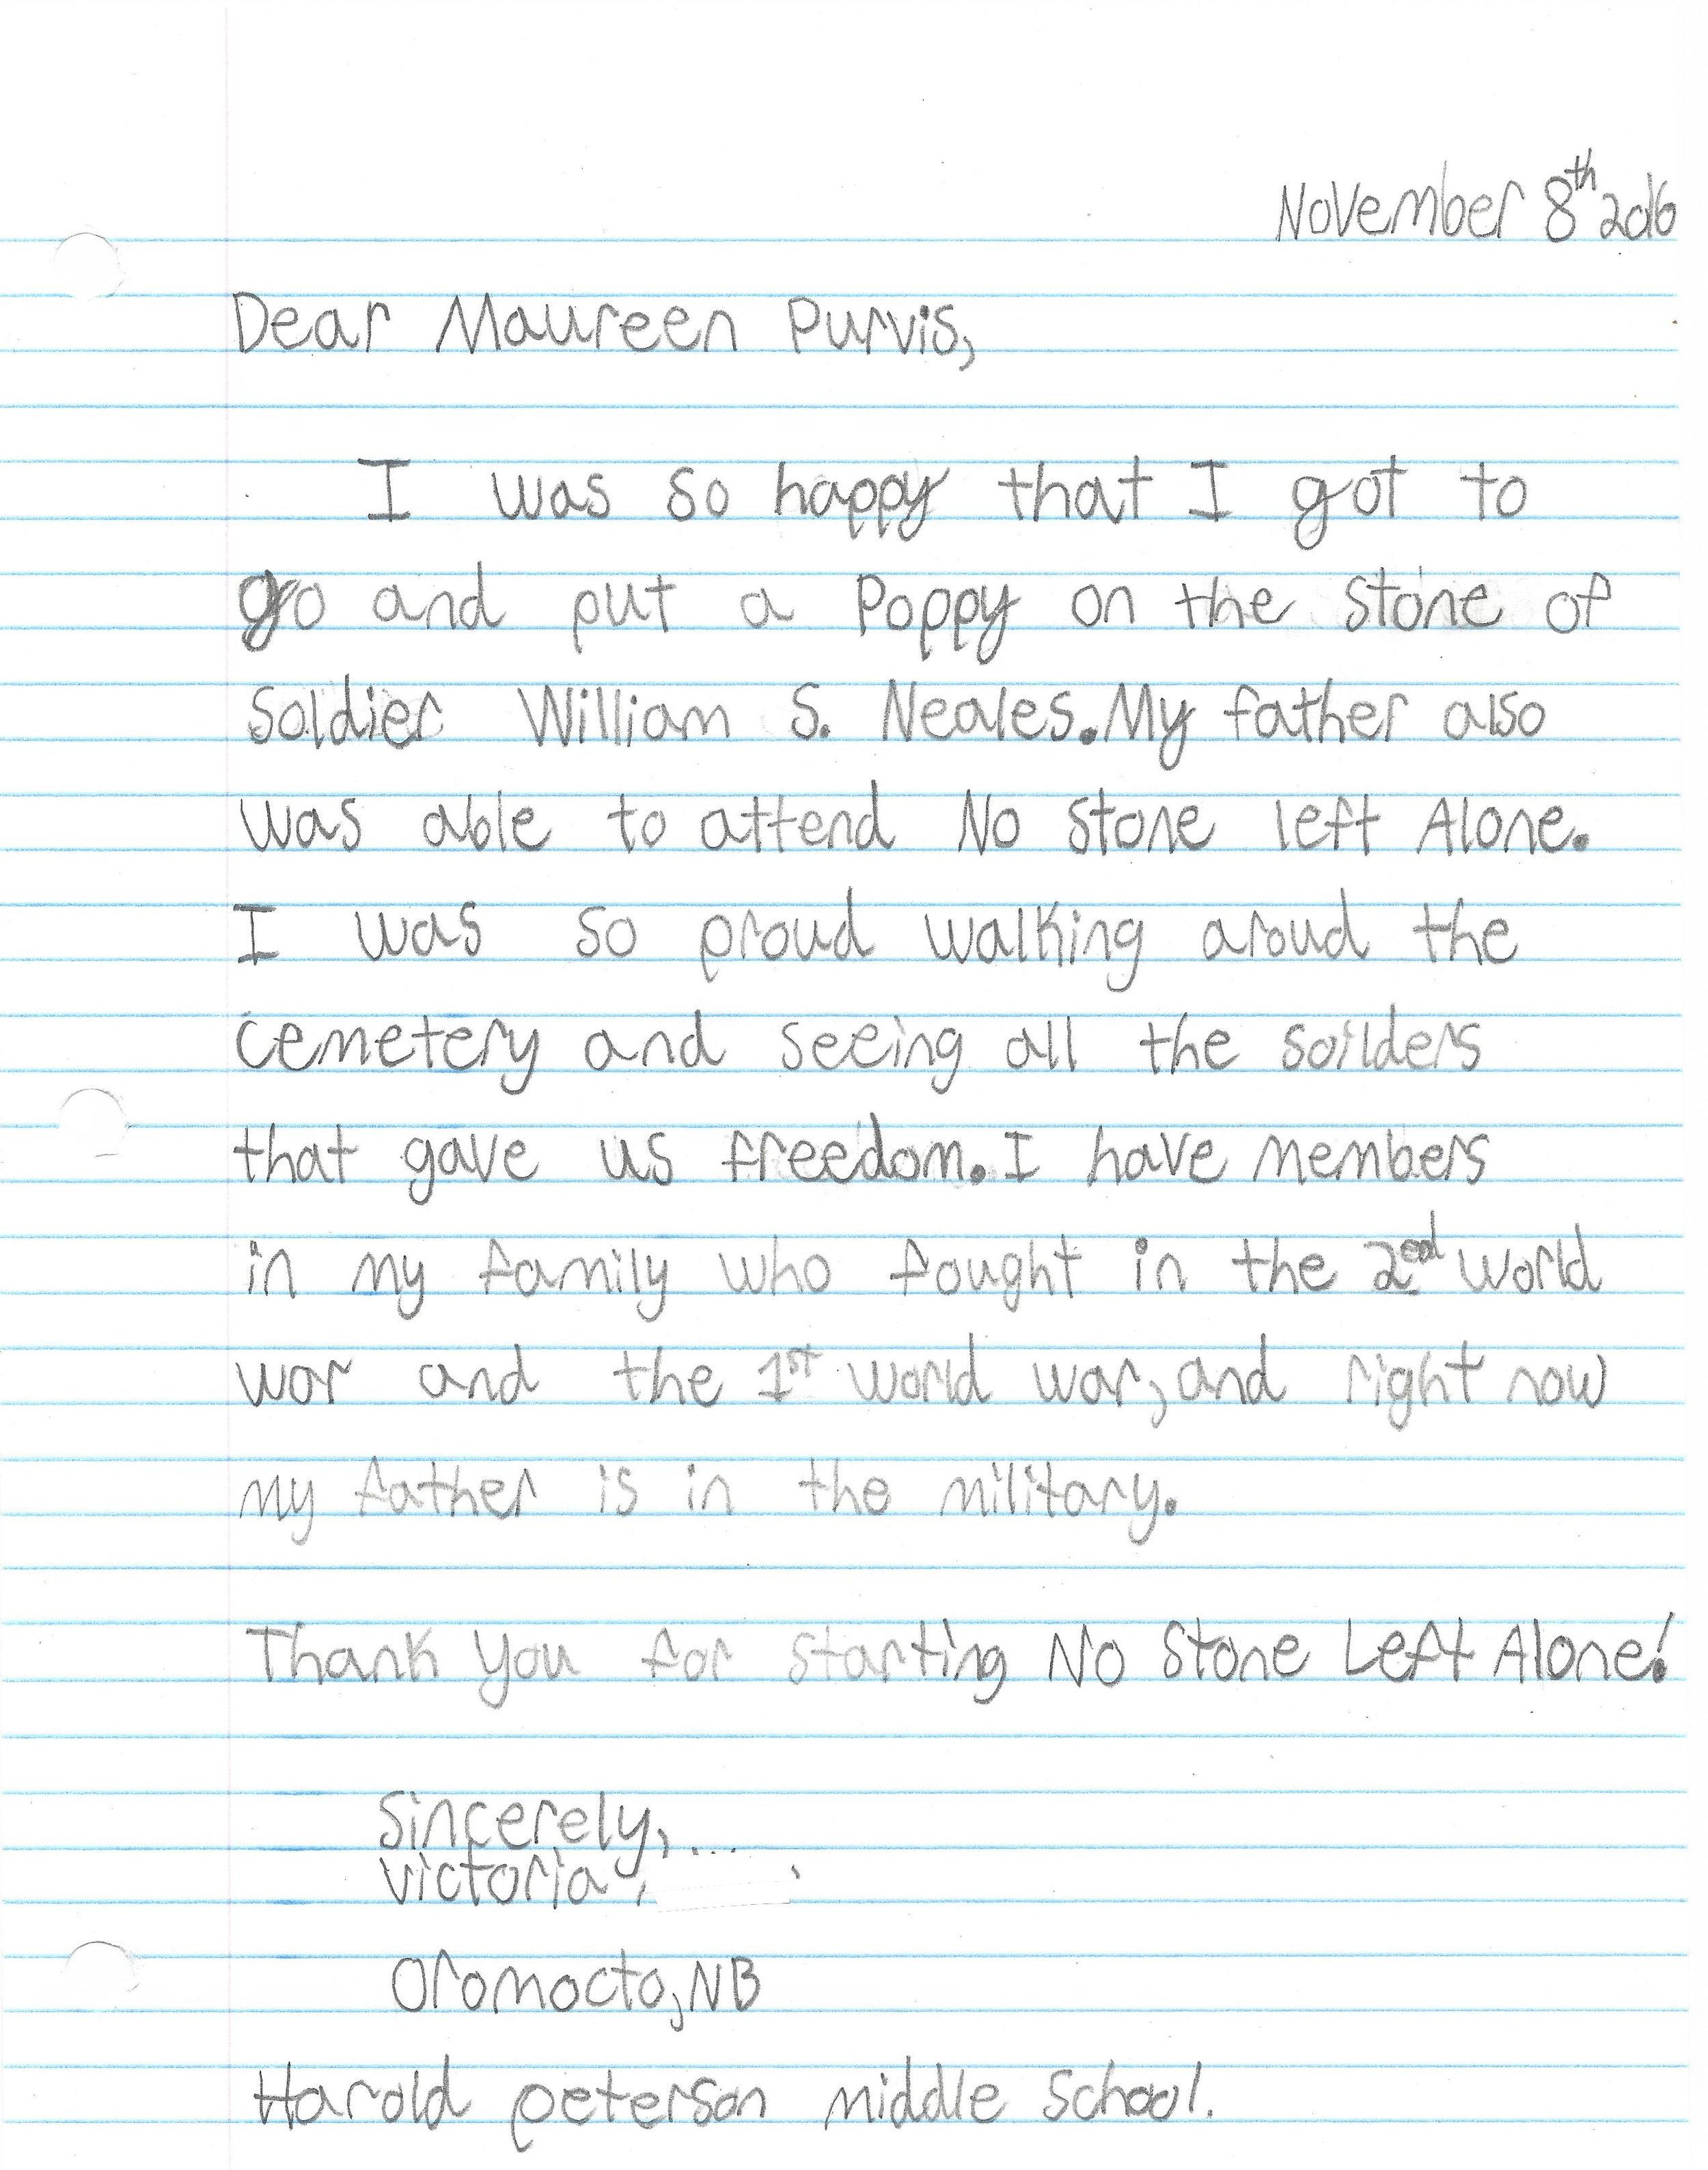 November 8th 2016
Dear Maureen Purvis,
I was so happy that I got to
go and put a Poppy on the stone of
soldier William S. Neales. My father also
was able to attend No stone left Alone.
I was so proud walking aroud the
cemetery and seeing all the soilders
that gave us freedom. I have members
in my family who fought in the 2ed world
war and the 1st world war, and right now
my father is in the military.
Thank you for starting No Stone Left Alone!
Sincerely,...
victoria,
Oromocto, NB
Harold peterson middle school.